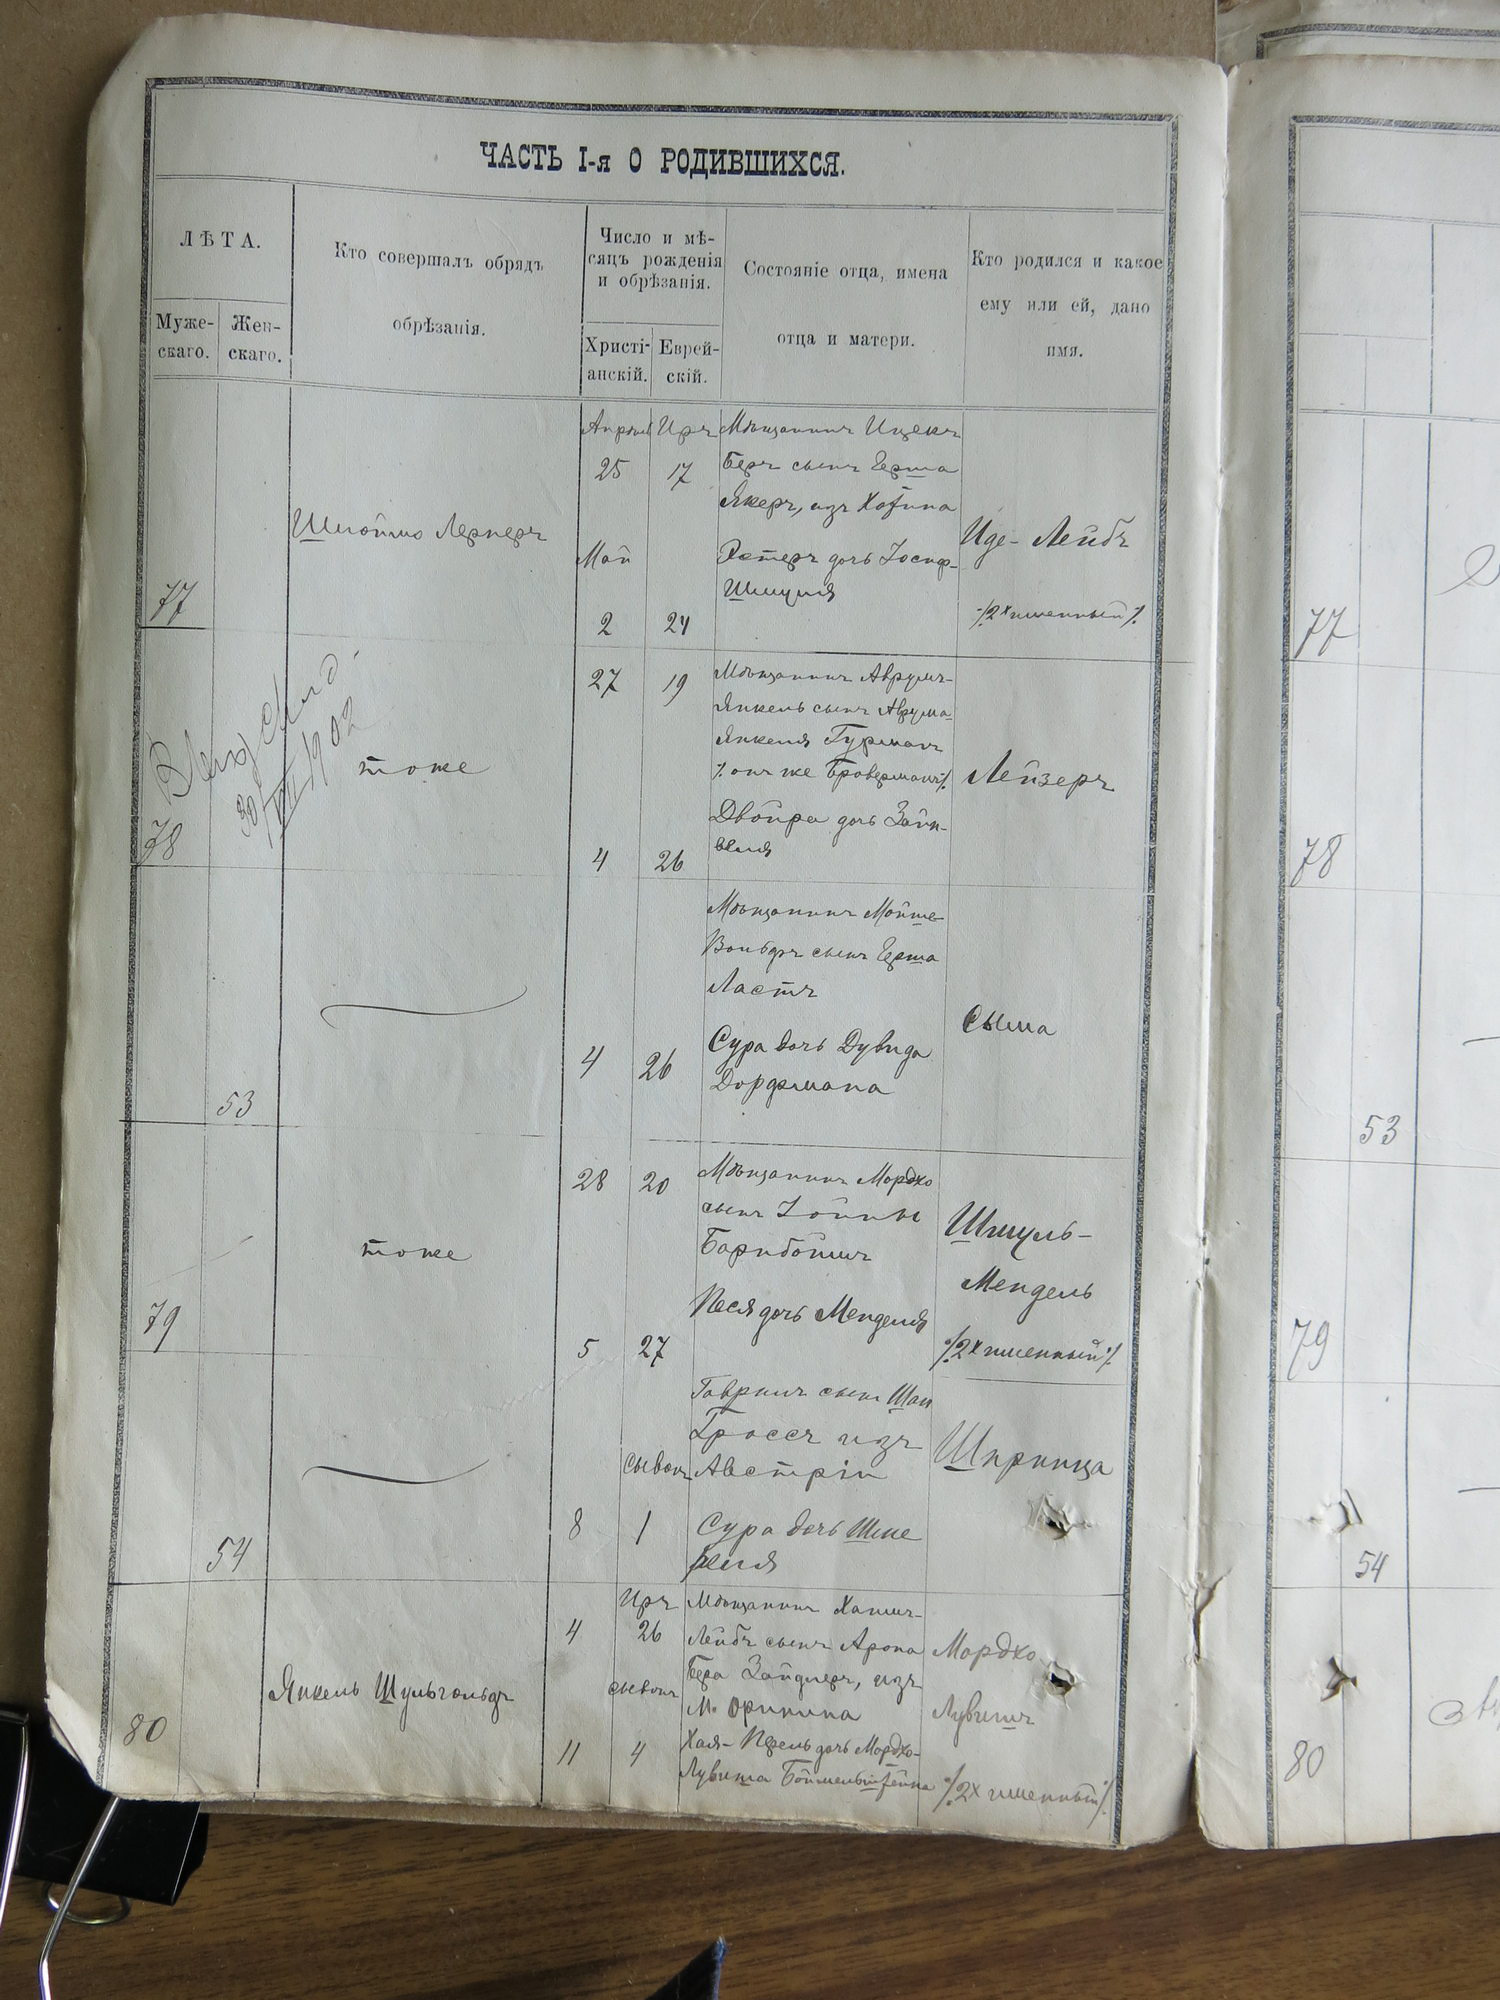 ЧАСТЬ I-я О РОДИВШИХСЯ.
ЛѢТА.
Муже-
скаго.
Жен-
скаго.
Кто совершалъ обрядъ
обрѣзанія.
Число и мѣ-
сяцъ рожденія
и обрѣзанія.
Христі-
анскій.
Еврей-
скій.
Состояніе отца, имена
отца и матери.
Кто родился и какое
ему или ей, дано
имя.
77
Шлоймо Лернеръ
Апрѣль Иръ
25 17
Май
2 24
Мѣщанинъ Ицекъ
Беръ сынъ Герша
Якеръ, изъ Хотина
Эстеръ дочь Іосиф-
Шмуля
Иде-Лейбъ
·/.2х именный·/.
78
30/VII 1902
тоже
27 19
4 26
Мѣщанинъ Аврумъ-
Янкель сынъ Аврума-
Янкеля Гурманъ
·/. онъ же Броверманъ·/.
Двойра дочь Зайн-
веля
Лейзеръ
53
4 26
Мѣщанинъ Мойше-
Вольфъ сынъ Герша
Ластъ
Сура дочь Дувида
Дорфмана
Сыма
79
тоже
28 20
5 27
Мѣщанинъ Мордхо
сынъ Іойны
Барибоймъ
Песя дочь Менделя
Шмуль-
Мендель
·/.2х именный·/.
54
Сывонъ
8 1
Гаврилъ сынъ
Гроссъ изъ
Австріи
Сура дочь Шме
реля
Шпринца
80
Янкель Шульгольдъ
Иръ
4 26
сывонъ
11 4
Мѣщанинъ Хаимъ-
Лейбъ сынъ Арона
Бера Зайдлеръ, изъ
м. Оринина
Хая-Перель дочь Мордхо-
Лувиша
Мордхо
Лувишъ
·/.2х именный·/.
77
78
53
79
54
80